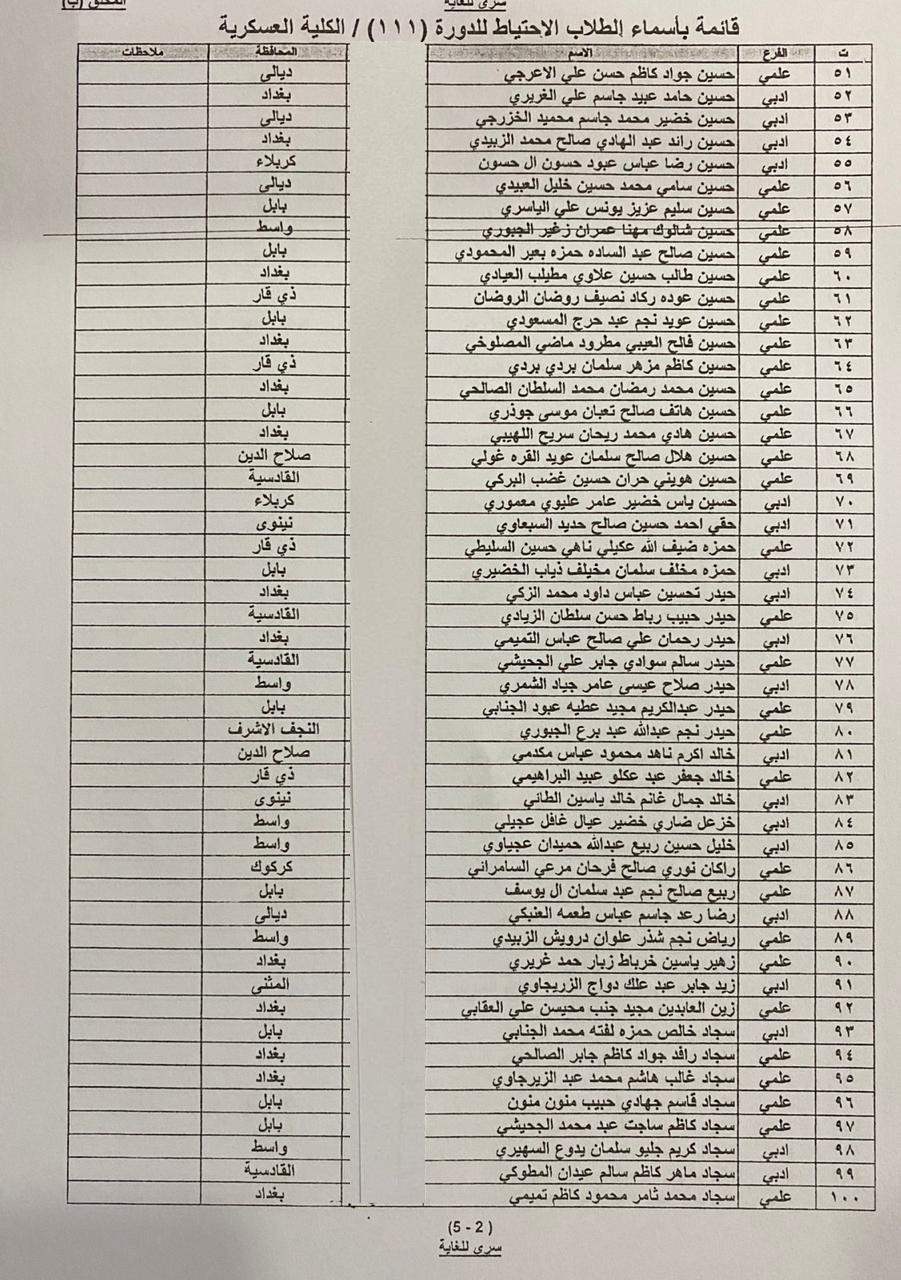 سري للغاية
الملحق (ب)
قائمة بأسماء الطلاب الاحتياط للدورة (١١١) / الكلية العسكرية
ت الفرع الاسم المحافظة ملاحظات
٥١ علمي حسين جواد كاظم حسن علي الاعرجي ديالى
٥٢ ادبي حسين حامد عبيد جاسم علي الغريري بغداد
٥٣ ادبي حسين خضير محمد جاسم محميد الخزرجي ديالى
٥٤ ادبي حسين رائد عبد الهادي صالح محمد الزبيدي بغداد
٥٥ ادبي حسين رضا عباس عبود حسون ال حسون كربلاء
٥٦ علمي حسين سامي محمد حسين خليل العبيدي ديالى
٥٧ علمي حسين سليم عزيز يونس علي الياسري بابل
٥٨ علمي حسين شالوك مهنا عمران زغير الجبوري واسط
٥٩ علمي حسين صالح عبد الساده حمزه بعير المحمودي بابل
٦٠ علمي حسين طالب حسين علاوي مطيلب العيادي بغداد
٦١ علمي حسين عوده ركاد نصيف روضان الروضان ذي قار
٦٢ علمي حسين عويد نجم عبد حرج المسعودي بابل
٦٣ علمي حسين فالح العيبي مطرود ماضي المصلوخي بغداد
٦٤ علمي حسين كاظم مزهر سلمان بردي بردي ذي قار
٦٥ علمي حسين محمد رمضان محمد السلطان الصالحي بغداد
٦٦ علمي حسين هاتف صالح تعبان موسى جوذري بابل
٦٧ علمي حسين هادي محمد ريحان سريح اللهيبي بغداد
٦٨ علمي حسين هلال صالح سلمان عويد القره غولي صلاح الدين
٦٩ علمي حسين هويني حران حسين غضب البركي القادسية
٧٠ ادبي حسين ياس خضير عامر عليوي معموري كربلاء
٧١ ادبي حقي احمد حسين صالح حديد السبعاوي نينوى
٧٢ علمي حمزه ضيف الله عكيلي ناهي حسين السليطي ذي قار
٧٣ ادبي حمزه مخلف سلمان مخيلف ذياب الخضيري بابل
٧٤ ادبي حيدر تحسين عباس داود محمد الزكي بغداد
٧٥ علمي حيدر حبيب رباط حسن سلطان الزيادي القادسية
٧٦ ادبي حيدر رحمان علي صالح عباس التميمي بغداد
٧٧ علمي حيدر سالم سوادي جابر علي الجحيشي القادسية
٧٨ ادبي حيدر صلاح عيسى عامر جياد الشمري واسط
٧٩ علمي حيدر عبدالكريم مجيد عطيه عبود الجنابي بابل
٨٠ علمي حيدر نجم عبدالله عبد برع الجبوري النجف الاشرف
٨١ ادبي خالد اكرم ناهد محمود عباس مكدمي صلاح الدين
٨٢ علمي خالد جعفر عبد عكلو عبيد البراهيمي ذي قار
٨٣ ادبي خالد جمال غانم خالد ياسين الطائي نينوى
٨٤ ادبي خزعل ضاري خضير عيال غافل عجيلي واسط
٨٥ ادبي خليل حسين ربيع عبدالله حميدان عجياوي واسط
٨٦ علمي راكان نوري صالح فرحان مرعي السامرائي كركوك
٨٧ علمي ربيع صالح نجم عبد سلمان ال يوسف بابل
٨٨ ادبي رضا رعد جاسم عباس طعمه العنبكي ديالى
٨٩ علمي رياض نجم شذر علوان درويش الزبيدي واسط
٩٠ علمي زهير ياسين خرباط زبار حمد غريري بغداد
٩١ ادبي زيد جابر عبد علك دواج الزريجاوي المثنى
٩٢ علمي زين العابدين مجيد جنب محيسن علي العقابي بغداد
٩٣ ادبي سجاد خالص حمزه لفته محمد الجنابي بابل
٩٤ علمي سجاد رافد جواد كاظم جابر الصالحي بغداد
٩٥ علمي سجاد غالب هاشم محمد عبد الزيرجاوي بغداد
٩٦ علمي سجاد قاسم جهادي حبيب منون منون بابل
٩٧ علمي سجاد كاظم ساجت عبد محمد الجحيشي بابل
٩٨ ادبي سجاد كريم جليو سلمان يدوع السهيري واسط
٩٩ ادبي سجاد ماهر كاظم سالم عيدان المطوكي القادسية
١٠٠ علمي سجاد محمد ثامر محمود كاظم تميمي بغداد
(5 - 2)
سري للغاية